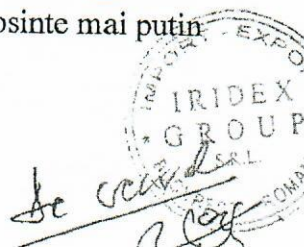 osinte mai putin
IMPORT - EXPO
IRIDEX
* GROUP
S.R.L.
ROMA
De acord